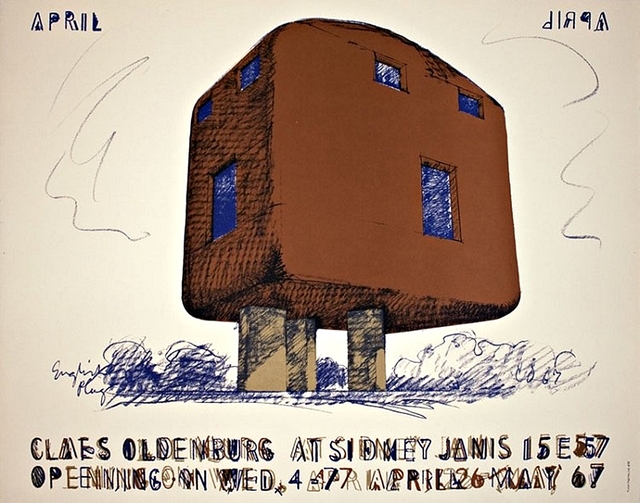 APRIL APRIL
English
Plug
CLAES OLDENBURG AT SIDNEY JANIS 15 E 57
OPENING ON WED. 4-7 APRIL 26-MAY 67